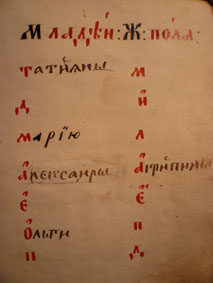 Младѣн: Ж: пола:
татиѧны
м
д
и
марїю
л
александры
агрипины
є
є
ѻльги
п
п
д